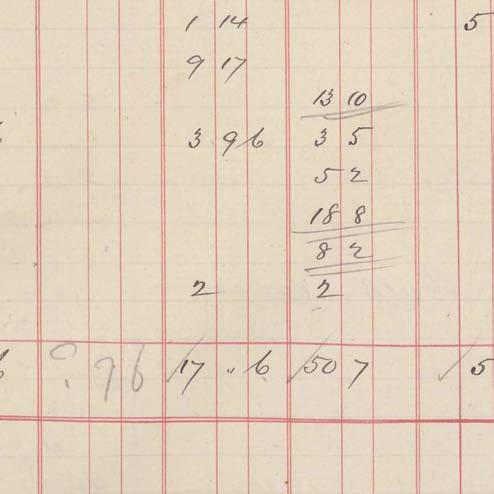 1 14 5
9 17
13 10
3 9 6 3 5
5 2
18 8
8 2
2 2
6 ? 9 6 17 " 6 50 7 5